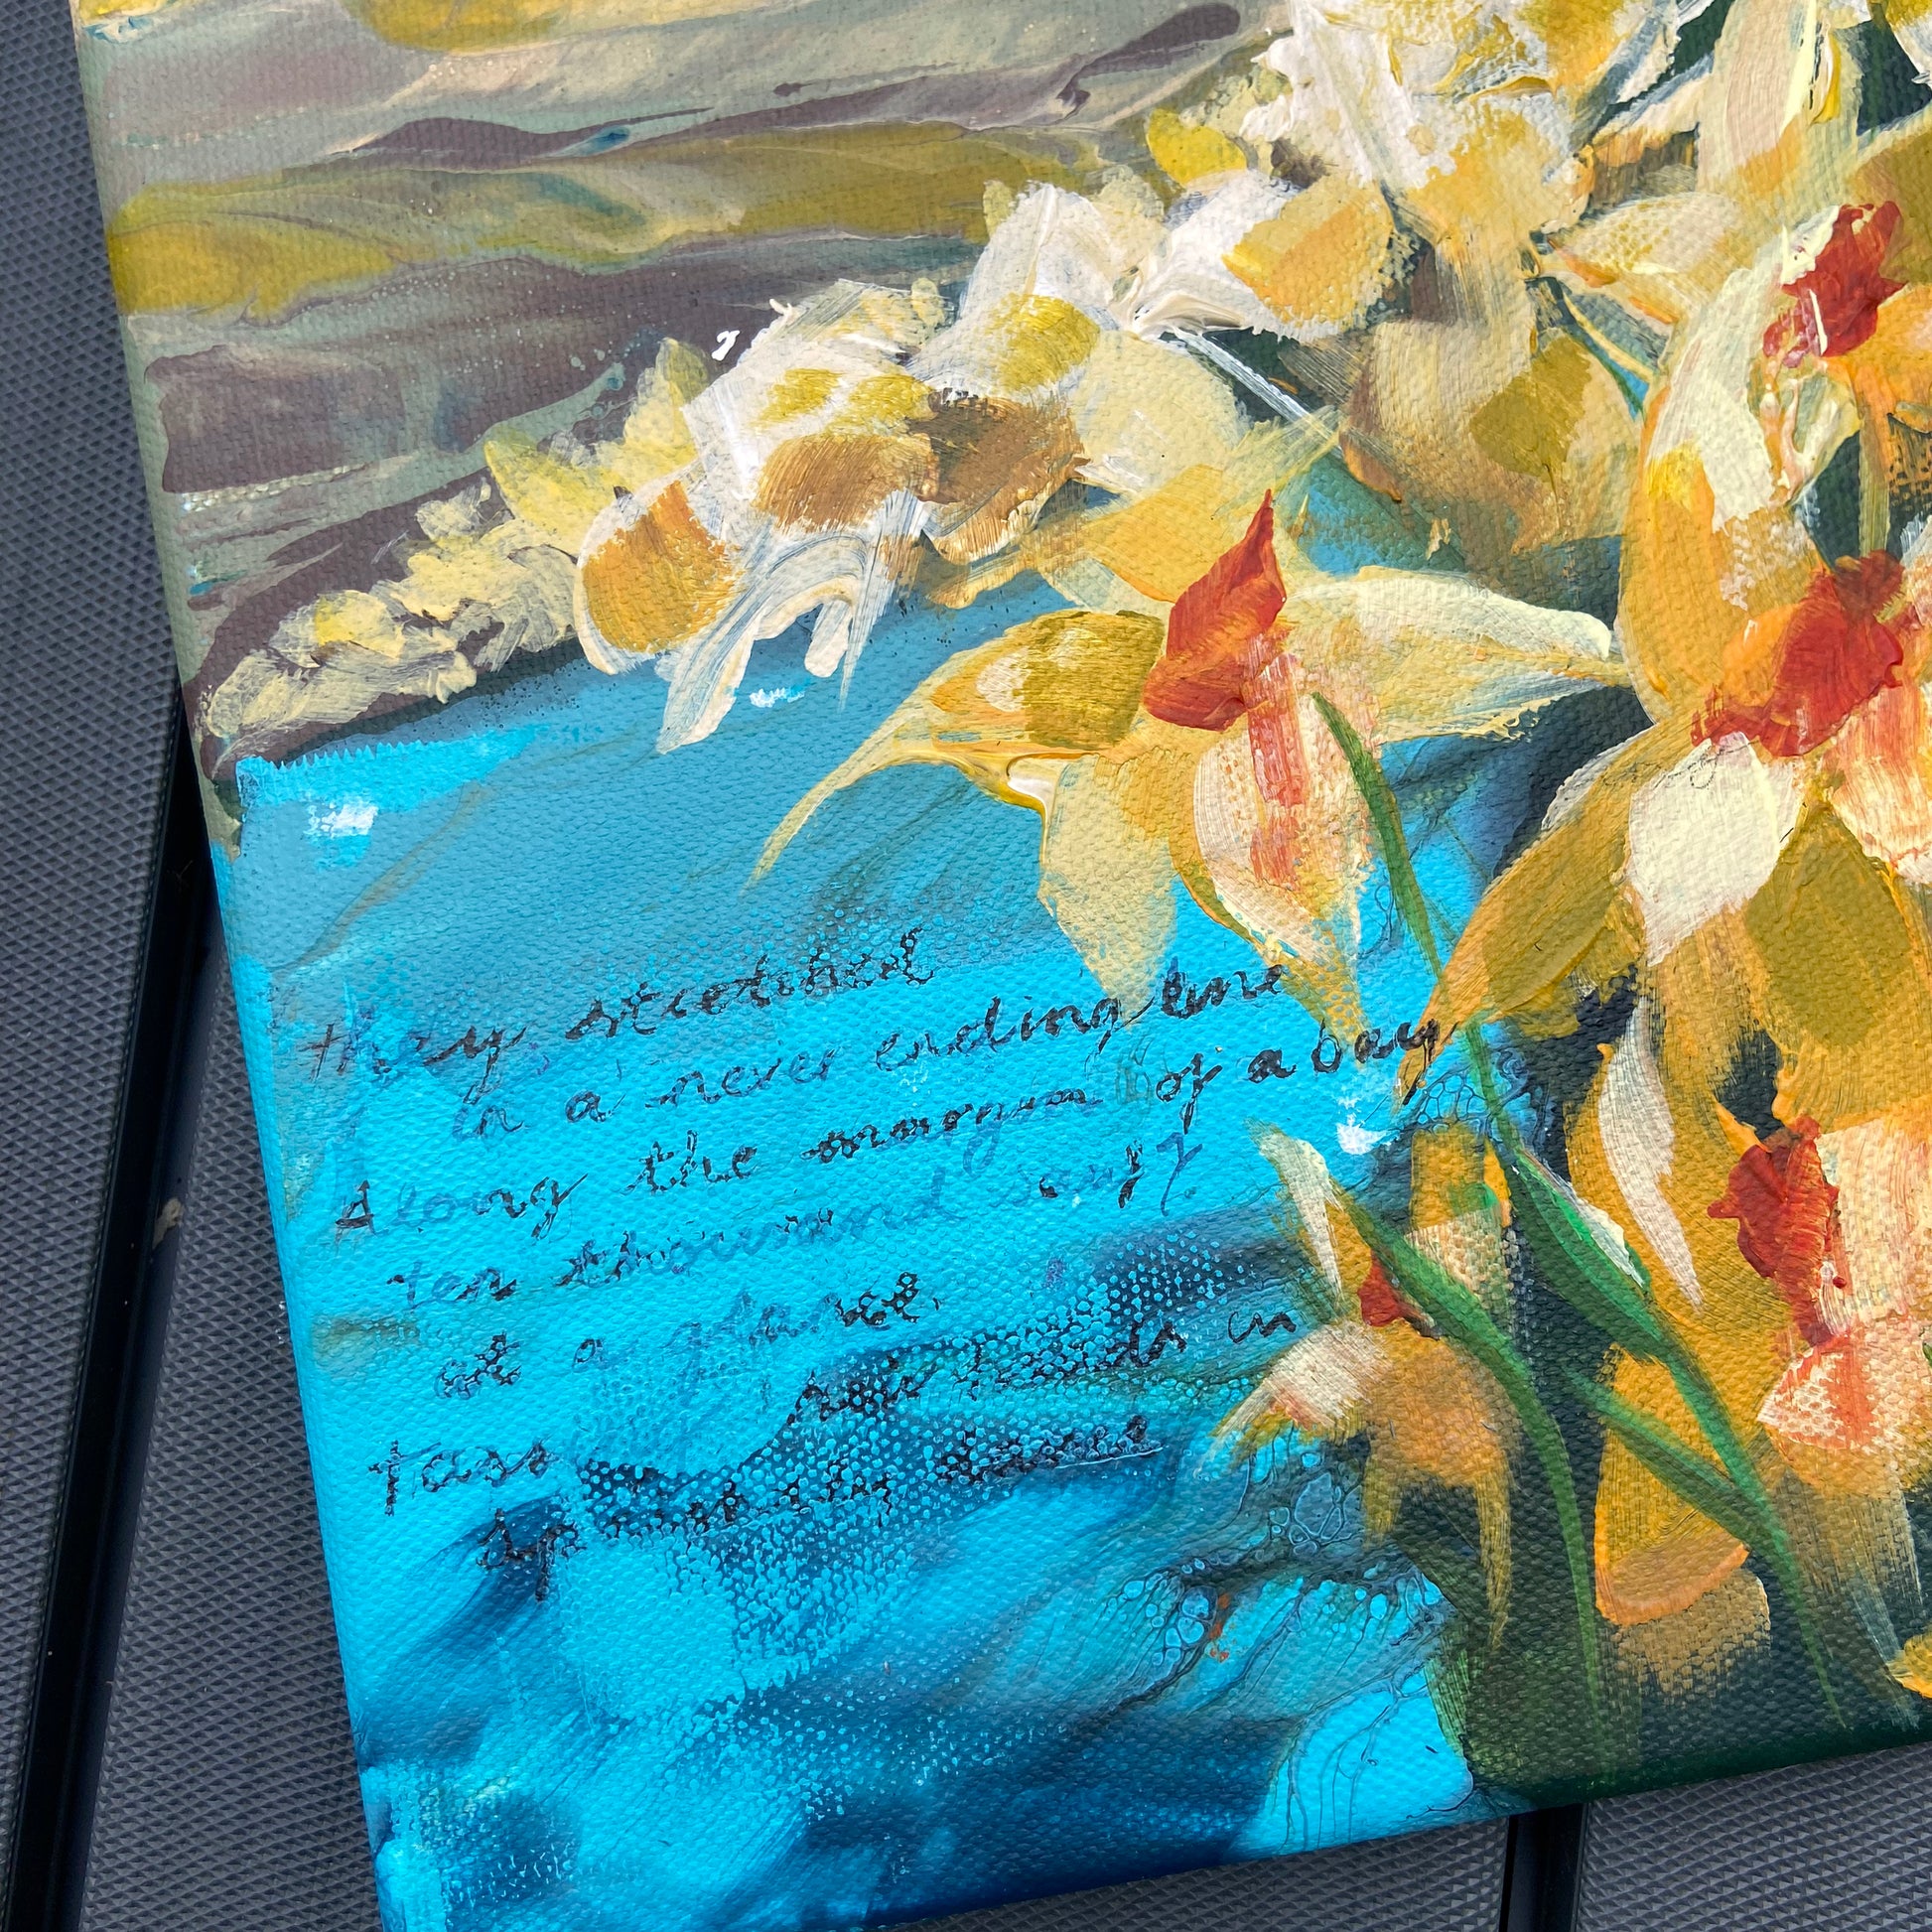 they stretched
in a never ending line
Along the margin of a bay
ten thousand saw I
at a glance
Tossing their heads in
sprightly dance